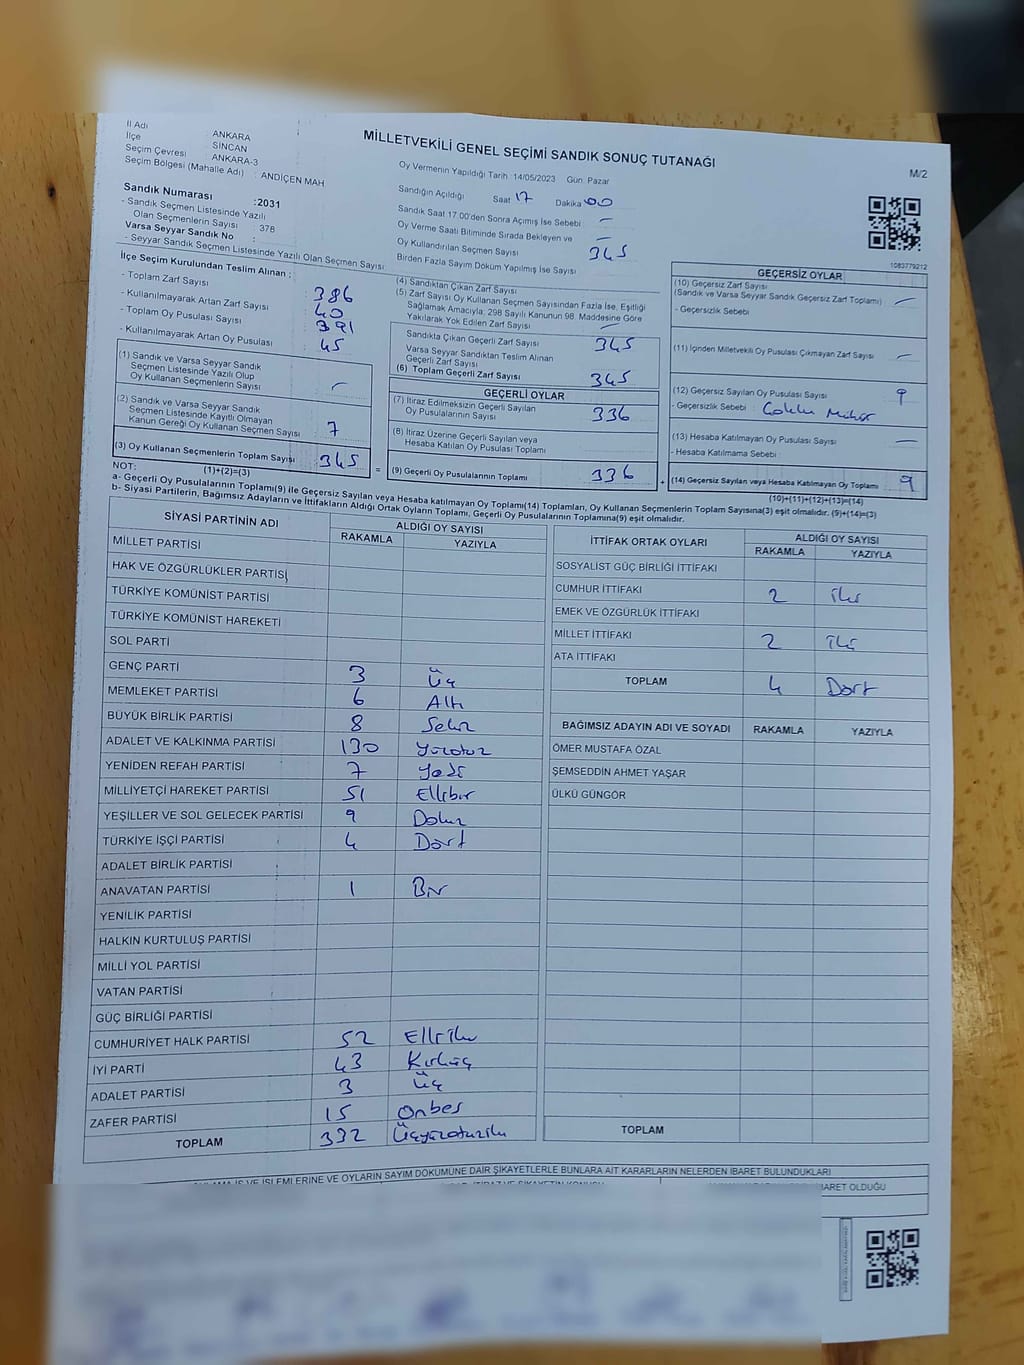 İl Adı : ANKARA
İlçe : SİNCAN
Seçim Çevresi : ANKARA-3
Seçim Bölgesi (Mahalle Adı) : ANDİÇEN MAH
MİLLETVEKİLİ GENEL SEÇİMİ SANDIK SONUÇ TUTANAĞI
M/2
Oy Vermenin Yapıldığı Tarih :14/05/2023 Gün: Pazar
Sandığın Açıldığı Saat 17 Dakika 00
Sandık Saat 17.00'den Sonra Açılmış İse Sebebi : –
Oy Verme Saati Bitiminde Sırada Bekleyen ve –
Oy Kullandırılan Seçmen Sayısı 345
Birden Fazla Sayım Döküm Yapılmış İse Sayısı
Sandık Numarası :2031
- Sandık Seçmen Listesinde Yazılı
Olan Seçmenlerin Sayısı : 378
Varsa Seyyar Sandık No :
- Seyyar Sandık Seçmen Listesinde Yazılı Olan Seçmen Sayısı
İlçe Seçim Kurulundan Teslim Alınan :
- Toplam Zarf Sayısı : 386
- Kullanılmayarak Artan Zarf Sayısı : 40
- Toplam Oy Pusulası Sayısı : 391
- Kullanılmayarak Artan Oy Pusulası : 45
(1) Sandık ve Varsa Seyyar Sandık
Seçmen Listesinde Yazılı Olup
Oy Kullanan Seçmenlerin Sayısı –
(2) Sandık ve Varsa Seyyar Sandık
Seçmen Listesinde Kayıtlı Olmayan
Kanun Gereği Oy Kullanan Seçmen Sayısı 7
(3) Oy Kullanan Seçmenlerin Toplam Sayısı 345
(1)+(2)=(3)
(4) Sandıktan Çıkan Zarf Sayısı
(5) Zarf Sayısı Oy Kullanan Seçmen Sayısından Fazla İse, Eşitliği
Sağlamak Amacıyla; 298 Sayılı Kanunun 98. Maddesine Göre
Yakılarak Yok Edilen Zarf Sayısı –
Sandıkta Çıkan Geçerli Zarf Sayısı 345
Varsa Seyyar Sandıktan Teslim Alınan
Geçerli Zarf Sayısı
(6) Toplam Geçerli Zarf Sayısı 345
GEÇERLİ OYLAR
(7) İtiraz Edilmeksizin Geçerli Sayılan
Oy Pusulalarının Sayısı 336
(8) İtiraz Üzerine Geçerli Sayılan veya
Hesaba Katılan Oy Pusulası Toplamı
= (9) Geçerli Oy Pusulalarının Toplamı 336 +
1083779212
GEÇERSİZ OYLAR
(10) Geçersiz Zarf Sayısı
(Sandık ve Varsa Seyyar Sandık Geçersiz Zarf Toplamı) –
- Geçersizlik Sebebi
(11) İçinden Milletvekili Oy Pusulası Çıkmayan Zarf Sayısı –
(12) Geçersiz Sayılan Oy Pusulası Sayısı 9
- Geçersizlik Sebebi
(13) Hesaba Katılmayan Oy Pusulası Sayısı –
- Hesaba Katılmama Sebebi :
(14) Geçersiz Sayılan veya Hesaba Katılmayan Oy Toplamı 9
(10)+(11)+(12)+(13)=(14)
NOT:
a- Geçerli Oy Pusulalarının Toplamı(9) ile Geçersiz Sayılan veya Hesaba katılmayan Oy Toplamı(14) Toplamları, Oy Kullanan Seçmenlerin Toplam Sayısına(3) eşit olmalıdır. (9)+(14)=(3)
b- Siyasi Partilerin, Bağımsız Adayların ve İttifakların Aldığı Ortak Oyların Toplamı, Geçerli Oy Pusulalarının Toplamına(9) eşit olmalıdır.
SİYASİ PARTİNİN ADI ALDIĞI OY SAYISI
RAKAMLA YAZIYLA
MİLLET PARTİSİ
HAK VE ÖZGÜRLÜKLER PARTİSİ
TÜRKİYE KOMÜNİST PARTİSİ
TÜRKİYE KOMÜNİST HAREKETİ
SOL PARTİ
GENÇ PARTİ 3 Üç
MEMLEKET PARTİSİ 6 Altı
BÜYÜK BİRLİK PARTİSİ 8 Sekiz
ADALET VE KALKINMA PARTİSİ 130 Yüzotuz
YENİDEN REFAH PARTİSİ 7 Yedi
MİLLİYETÇİ HAREKET PARTİSİ 51 Ellibir
YEŞİLLER VE SOL GELECEK PARTİSİ 9 Dokuz
TÜRKİYE İŞÇİ PARTİSİ 4 Dört
ADALET BİRLİK PARTİSİ
ANAVATAN PARTİSİ 1 Bir
YENİLİK PARTİSİ
HALKIN KURTULUŞ PARTİSİ
MİLLİ YOL PARTİSİ
VATAN PARTİSİ
GÜÇ BİRLİĞİ PARTİSİ
CUMHURİYET HALK PARTİSİ 52 Elliiki
İYİ PARTİ 43 Kırküç
ADALET PARTİSİ 3 Üç
ZAFER PARTİSİ 15 Onbeş
TOPLAM 332 Üçyüzotuziki
İTTİFAK ORTAK OYLARI ALDIĞI OY SAYISI
RAKAMLA YAZIYLA
SOSYALİST GÜÇ BİRLİĞİ İTTİFAKI
CUMHUR İTTİFAKI 2 İki
EMEK VE ÖZGÜRLÜK İTTİFAKI
MİLLET İTTİFAKI 2 İki
ATA İTTİFAKI
TOPLAM 4 Dört
BAĞIMSIZ ADAYIN ADI VE SOYADI RAKAMLA YAZIYLA
ÖMER MUSTAFA ÖZAL
ŞEMSEDDİN AHMET YAŞAR
ÜLKÜ GÜNGÖR
TOPLAM
İŞ VE İŞLEMLERİNE VE OYLARIN SAYIM DÖKÜMÜNE DAİR ŞİKAYETLERLE BUNLARA AİT KARARLARIN NELERDEN İBARET BULUNDUKLARI
İBARET OLDUĞU